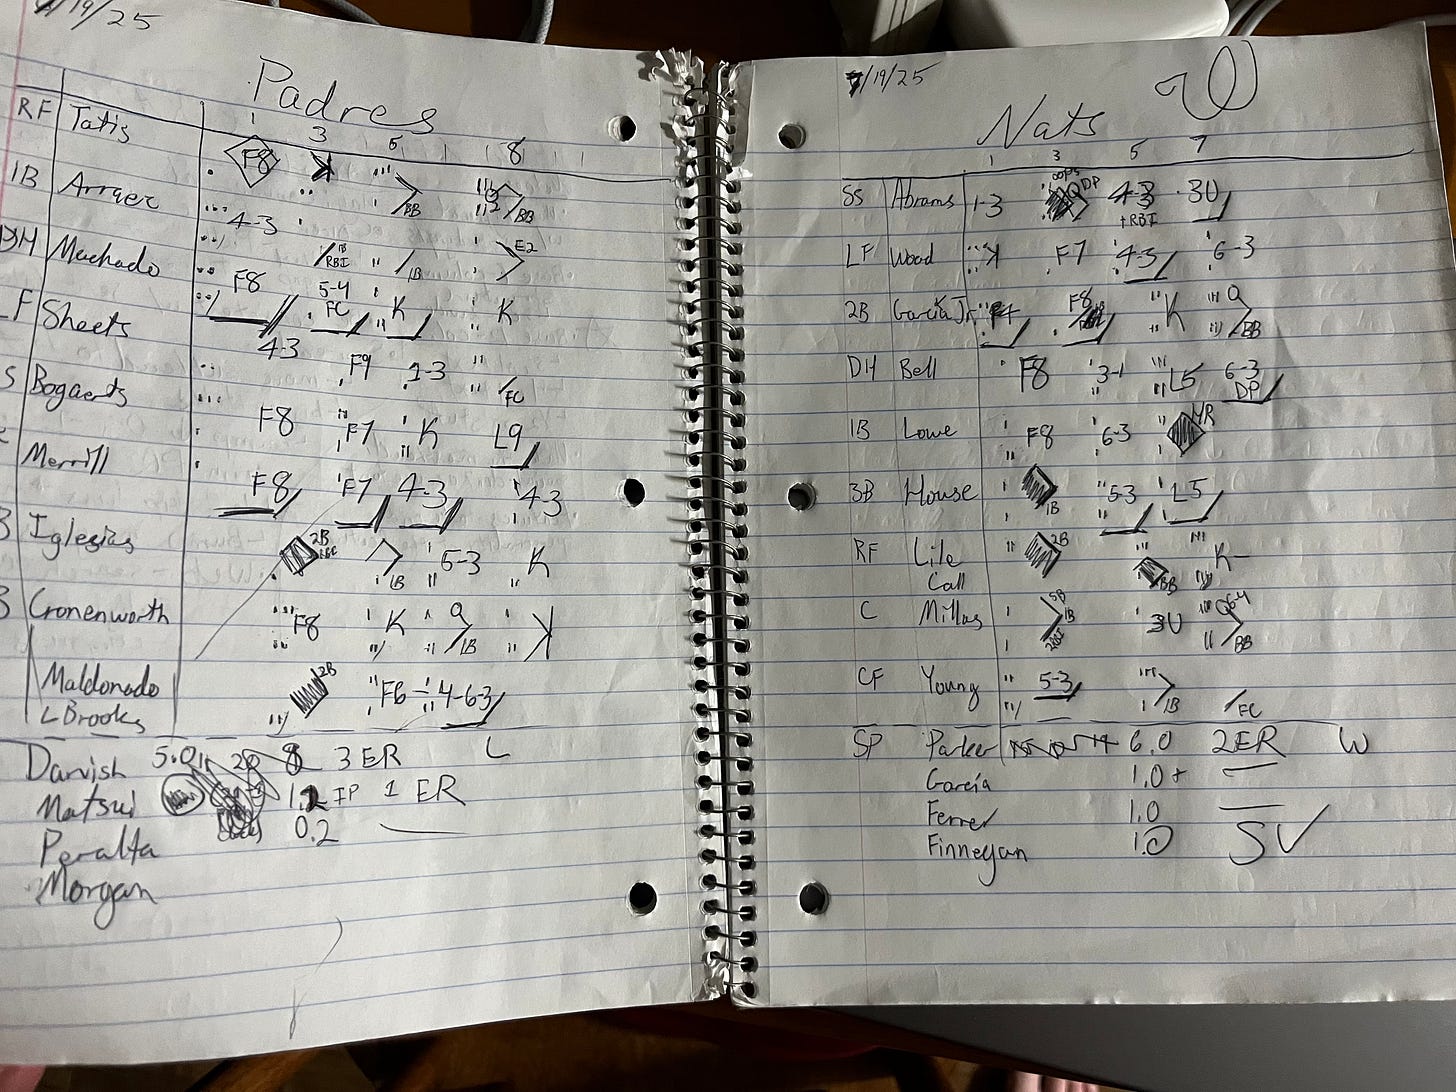 /19/25
Padres
1 3 5 8
RF Tatis F8 BB BB
1B Arraez 4-3 1B RBI 1B E2
DH Machado F8 5-4 FC K K
F Sheets 4-3 F9 1-3 FC
S Bogaerts F8 F7 K L9
Merrill F8 F7 4-3 4-3
Iglesias 2B 1B 5-3 K
Cronenworth F8 K 1B
Maldonado 2B F6 4-6-3
L Brooks
Darvish 5.0 8 3 ER L
Matsui IP 1 ER
Peralta 0.2 —
Morgan
7/19/25
Nats
1 3 5 7
SS Abrams 1-3 oops DP 4-3 +RBI 3U
LF Wood F7 4-3 6-3
2B García Jr. F8 K BB
DH Bell F8 3-1 L5 6-3 DP
1B Lowe F8 6-3 HR
3B House 1B 5-3 L5
RF Lile 2B BB K
Call
C Millas SB 1B 2RBI 3U 6-4 BB
CF Young 5-3 1B FC
SP Parker 6.0 2ER W
García 1.0+ —
Ferrer 1.0 —
Finnegan 1.0 SV